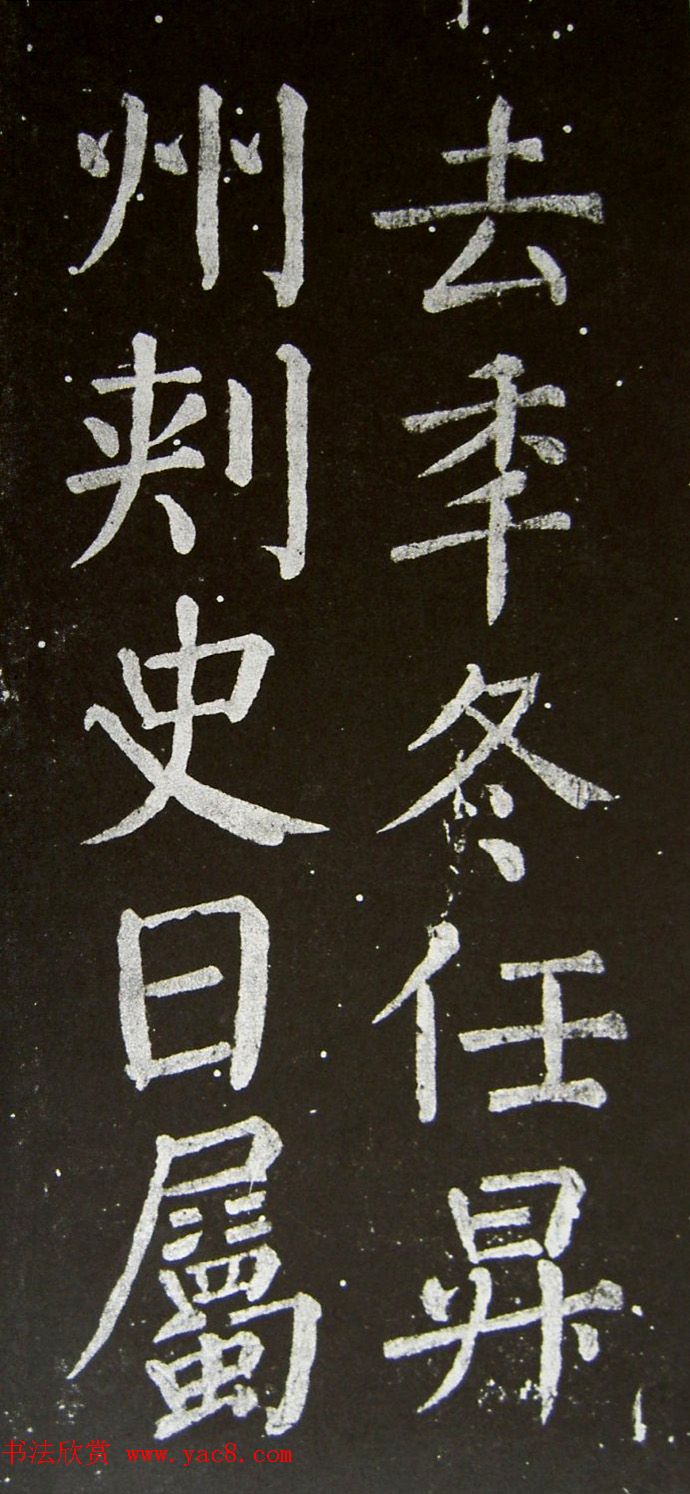 去秊冬任昇
州刾史日屬
书法欣赏 www.yac8.com